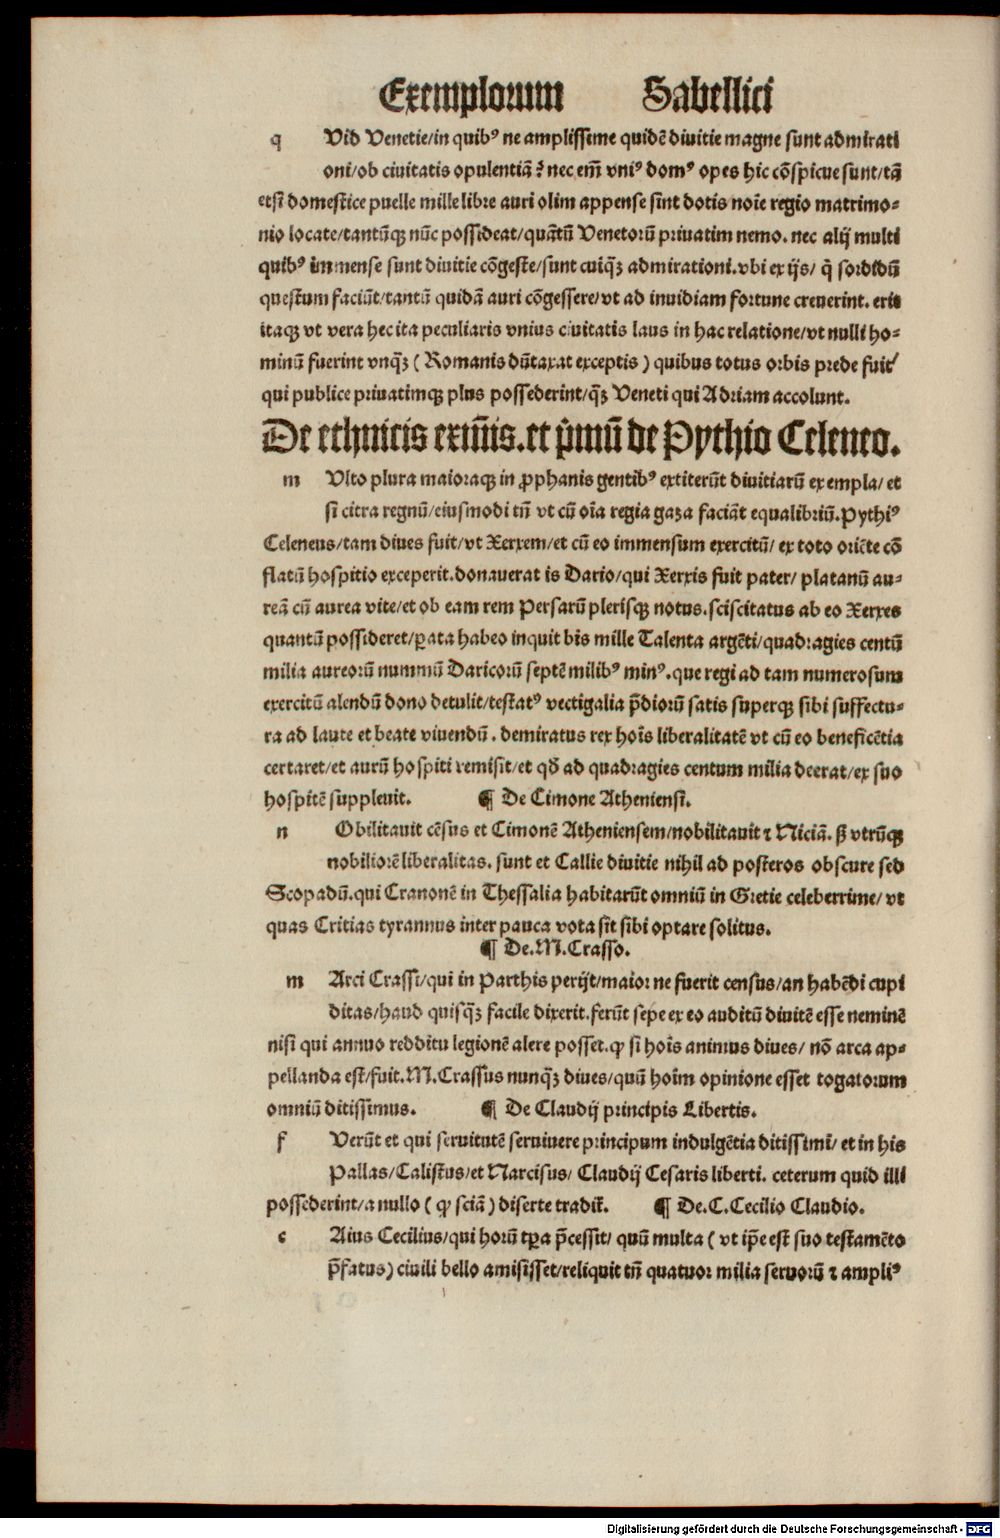 Exemplorum Sabellici
q Vid Venetie/in quibꝰ ne amplissime quidē diuitie magne sunt admirati
oni/ob ciuitatis opulentiā? nec em̄ vniꝰ domꝰ opes hic cōspicue sunt/tā
etsi domestice puelle mille libre auri olim appense sint dotis noīe regio matrimo⸗
nio locate/tantūqꝫ nūc possideat/quātū Venetorū priuatim nemo. nec alij multi
quibꝰ immense sunt diuitie cōgeste/sunt cuiqꝫ admirationi. vbi ex ijs/ q̄ sordidū
questum faciūt/tantū quidā auri cōgessere/vt ad inuidiam fortune creuerint. erit
itaqꝫ vt vera hec ita peculiaris vnius ciuitatis laus in hac relatione/vt nulli ho⸗
minū fuerint vnqꝫ̄ (Romanis dūtaxat exceptis) quibus totus orbis prede fuit/
qui publice priuatimqꝫ plus possederint/qꝫ̄ Veneti qui Adriam accolunt.
De ethnicis eximijs. et p̄mū de Pythio Celeneo.
m Vlto plura maioraqꝫ in ꝓphanis gentibꝰ extiterūt diuitiarū exempla/ et
si citra regnū/eiusmodi tn̄ vt cū oīa regia gaza faciāt equalibriū. Pythiꝰ
Celeneus/tam diues fuit/vt Xerxem/et cū eo immensum exercitū/ ex toto oriēte cō
flatū hospitio exceperit. donauerat is Dario/qui Xerxis fuit pater/ platanū au⸗
reā cū aurea vite/et ob eam rem Persarū plerisqꝫ notus. sciscitatus ab eo Xerxes
quantū possideret/ꝑata habeo inquit bis mille Talenta argēti/quadragies centū
milia aureorū nummū Daricorū septē milibꝰ minꝰ. que regi ad tam numerosum
exercitū alendū dono detulit/testatꝰ vectigalia p̄diorū satis superqꝫ sibi suffectu⸗
ra ad laute et beate viuendū. demiratus rex hoīs liberalitatē vt cū eo beneficētia
certaret/et aurū hospiti remisit/et qđ ad quadragies centum milia deerat/ex suo
hospitē suppleuit. ¶ De Cimone Atheniensi.
n Obilitauit cēsus et Cimonē Atheniensem/nobilitauit ⁊ Niciā. sꝫ vtrūqꝫ
nobiliorē liberalitas. sunt et Callie diuitie nihil ad posteros obscure sed
Scopadū. qui Cranonē in Thessalia habitarūt omniū in Gretie celeberrime/ vt
quas Critias tyrannus inter pauca vota sit sibi optare solitus.
¶ De. M. Crasso.
m Arci Crassi/qui in Parthis perijt/maior ne fuerit census/an habēdi cupi
ditas/haud quisqꝫ̄ facile dixerit. ferūt sepe ex eo auditū diuitē esse neminē
nisi qui annuo redditu legionē alere posset. ꝙ si hoīs animus diues/ nō arca ap⸗
pellanda est/fuit. M. Crassus nunqꝫ̄ diues/quū hoīm opinione esset togatorum
omniū ditissimus. ¶ De Claudij principis Libertis.
f Verūt et qui seruitutē seruiuere principum indulgētia ditissimi/ et in his
Pallas/Calistus/et Narcisus/ Claudij Cesaris liberti. ceterum quid illi
possederint/a nullo (ꝙ sciā) diserte tradit̄. ¶ De. C. Cecilio Claudio.
c Aius Cecilius/qui horū tꝑa p̄cessit/ quū multa (vt ip̄e est suo testamēto
p̄fatus) ciuili bello amisisset/reliquit tn̄ quatuor milia seruorū ⁊ ampliꝰ
Digitalisierung gefördert durch die Deutsche Forschungsgemeinschaft - DFG